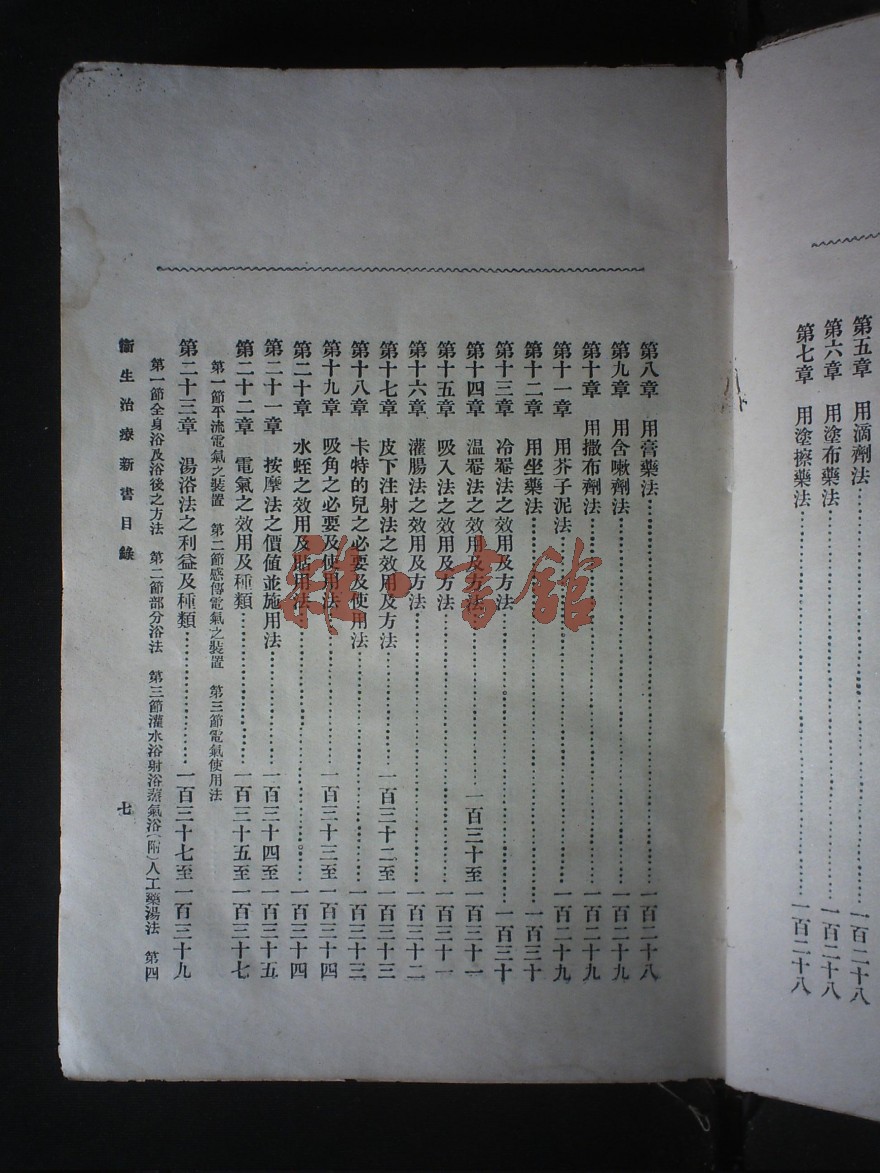 第五章　用滴劑法……一百二十八
第六章　用塗布藥法……一百二十八
第七章　用塗擦藥法……一百二十八
第八章　用膏藥法……一百二十八
第九章　用含嗽劑法……一百二十九
第十章　用撒布劑法……一百二十九
第十一章　用芥子泥法……一百二十九
第十二章　用坐藥法……一百三十
第十三章　冷罨法之效用及方法……一百三十
第十四章　溫罨法之效用及方法……一百三十至一百三十一
第十五章　吸入法之效用及方法……一百三十一
第十六章　灌腸法之效用及方法……一百三十二
第十七章　皮下注射法之效用及方法……一百三十二至一百三十三
第十八章　卡特的兒之必要及使用法……一百三十三
第十九章　吸角之必要及使用法……一百三十三至一百三十四
第二十章　水蛭之效用及貼用法……一百三十四
第二十一章　按摩法之價値並施用法……一百三十四至一百三十五
第二十二章　電氣之效用及種類……一百三十五至一百三十七
第一節平流電氣之裝置　第二節感傳電氣之裝置　第三節電氣使用法
第二十三章　湯浴法之利益及種類……一百三十七至一百三十九
第一節全身浴及浴後之方法　第二節部分浴法　第三節灌水浴射浴蒸氣浴（附）人工藥湯法　第四
衞生治療新書目錄　七
雜·書館